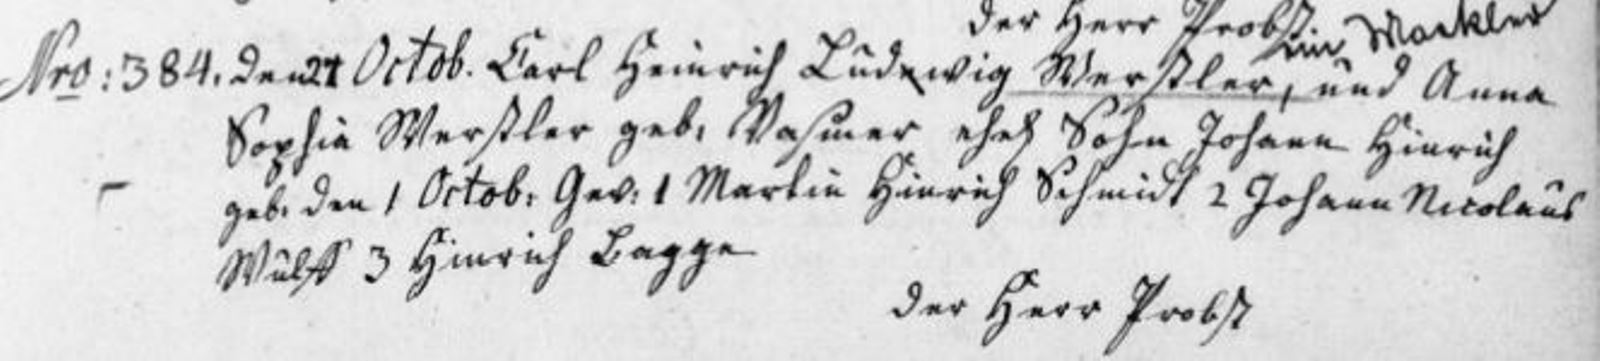 der Herr Probst
ein Mackler
Nro: 384. den 21 Octob. Carl Heinrich Ludewig Werstler, und Anna
Sophia Werstler geb. Vasmer ehel Sohn Johann Hinrich
geb. den 1 Octob: Gev: 1 Martin Hinrich Schmidt 2 Johann Nicolaus
Wulff 3 Hinrich Bagge
der Herr Probst